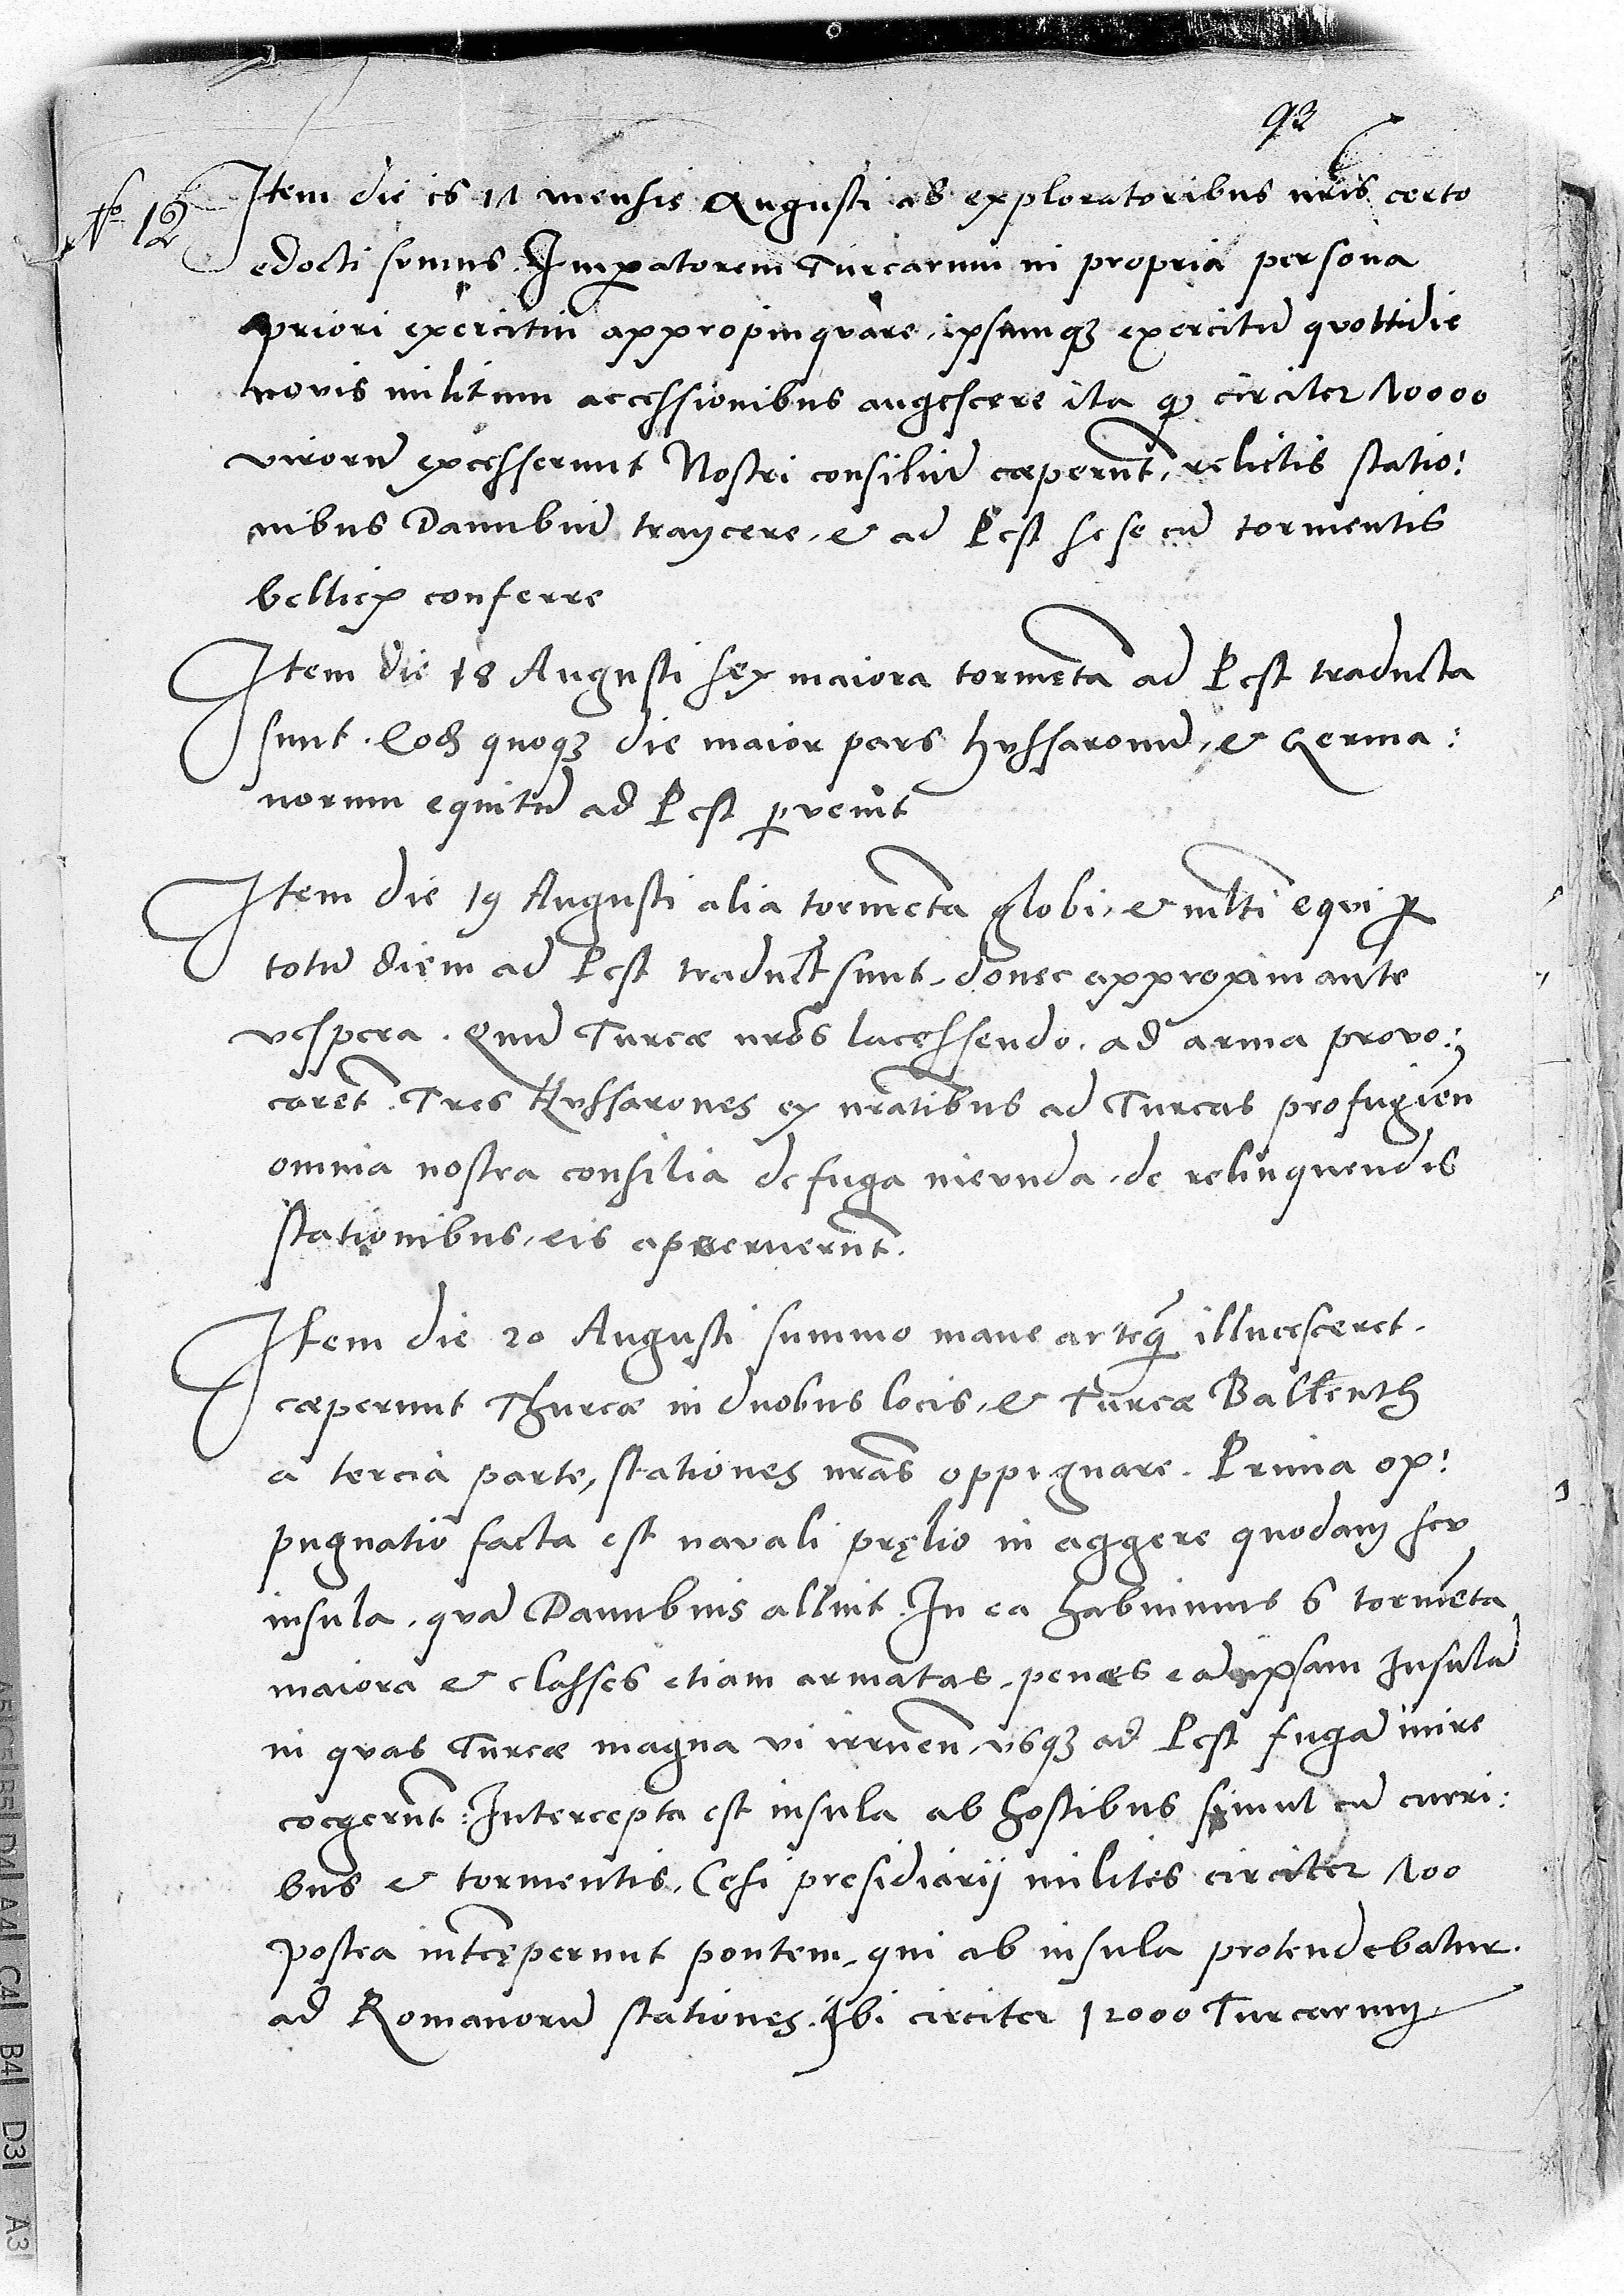 92
No 12
Item die 17 mensis Augusti ab exploratoribus nr̃is certo
edocti sumus. Imp̱atorem Turcarum in propria persona
priori exercitui appropinquare, ipsumqꝫ exercitũ quottidie
novis militum accessionibus augescere ita ꝙ circiter 10000
virorũ excesserunt Nostri consiliũ cœperũt, relictis statio:
nibus Danubiũ traÿcere, & ad Pest sese cũ tormentis
bellicꝭ conferre
Item die 18 Augusti sex maiora tormẽta ad Pest traducta
sunt. Eod quoqꝫ die maior pars hussaronũ, & Germa:
norum equitũ ad Pest p̱venit
Item die 19 Augusti alia tormẽta globi, & ml̃ti equi ꝑ
totũ diem ad Pest traduct sunt, donec approximante
vespera. Quũ Turcæ nr̃os lacessendo, ad arma provo:
carẽt. Tres Hussarones ex nr̃atibus ad Turcas profugiẽn
omnia nostra consilia de fuga ineunda, de relinquendis
stationibus, eis aperuerũt.
Item die 20 Augusti summo mane anteq̃ illucesceret.
cæperunt Thurcæ in duobus locis, & Turcæ Balkenth
a tercia parte, stationes nr̃as oppignare. Prima op:
pugnatio facta est navali pręlio in aggere quodam seu
insula, quã Danubius alluit. In ea habuimus 6 tormẽta
maiora & classes etiam armatas, penes eã ipsam Insulã
in quas Turcæ magna vi irruẽn, usqꝫ ad Pest fugã inire
coegerũt: Intercepta est insula ab hostibus simul cũ curri:
bus & tormentis, Cesi presidiarij milites circiter 100
postea intcęperunt pontem, qui ab insula protendebatur.
ad Romanorũ stationes. Ibi circiter 12000 Turcarum